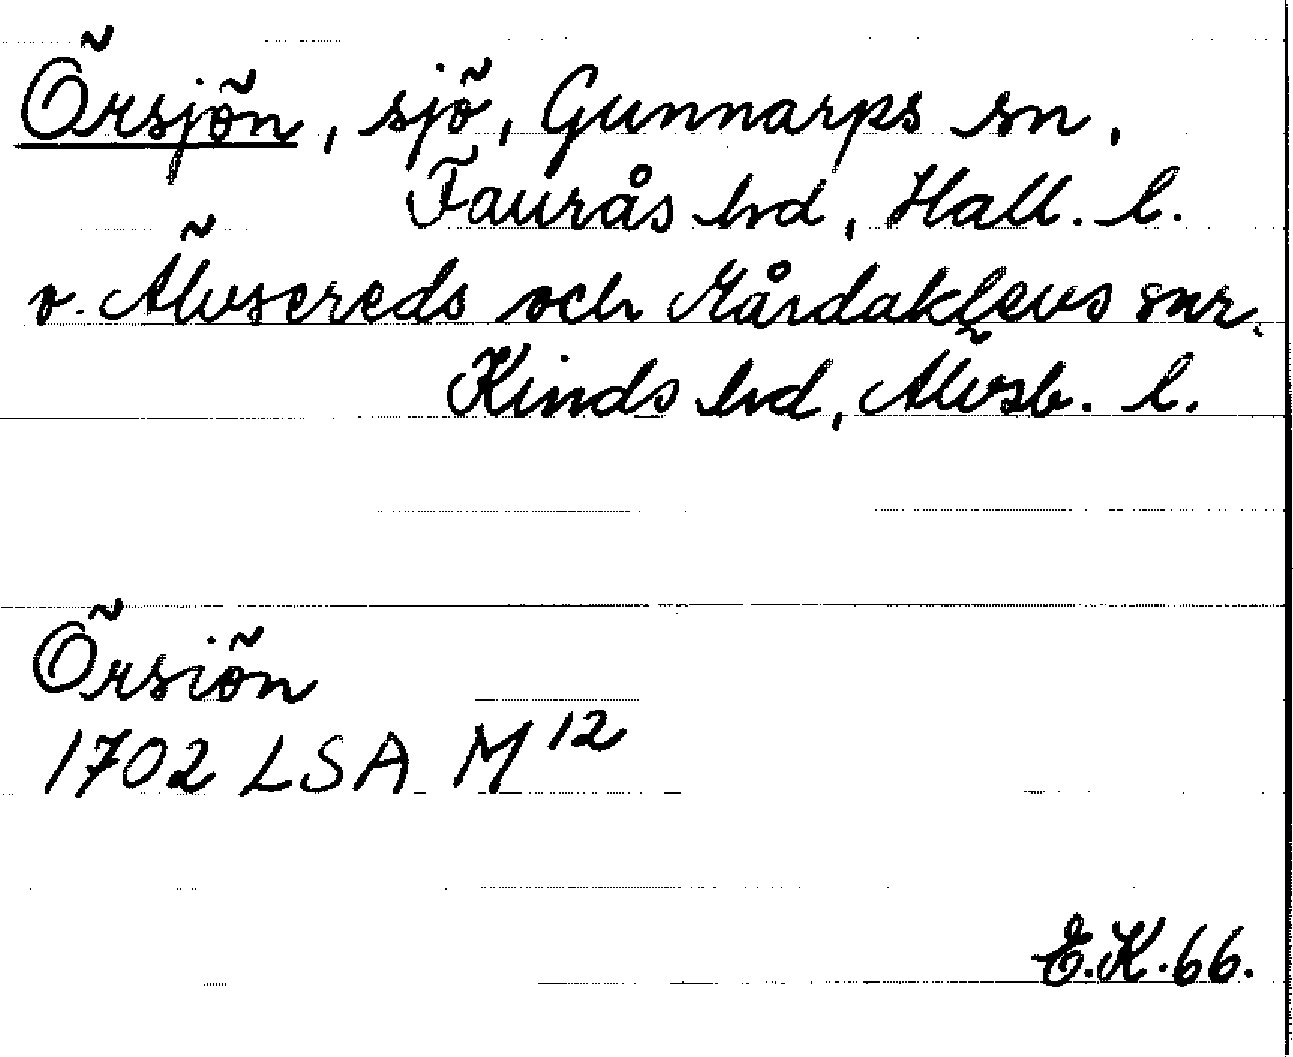 Örsjön, sjö, Gunnarps sn,
Faurås hd, Hall. l.
o. Älvsereds och Mårdaklevs snr,
Kinds hd, Älvsb. l.
Örsiön
1702 LSA M 12
E.K.66.